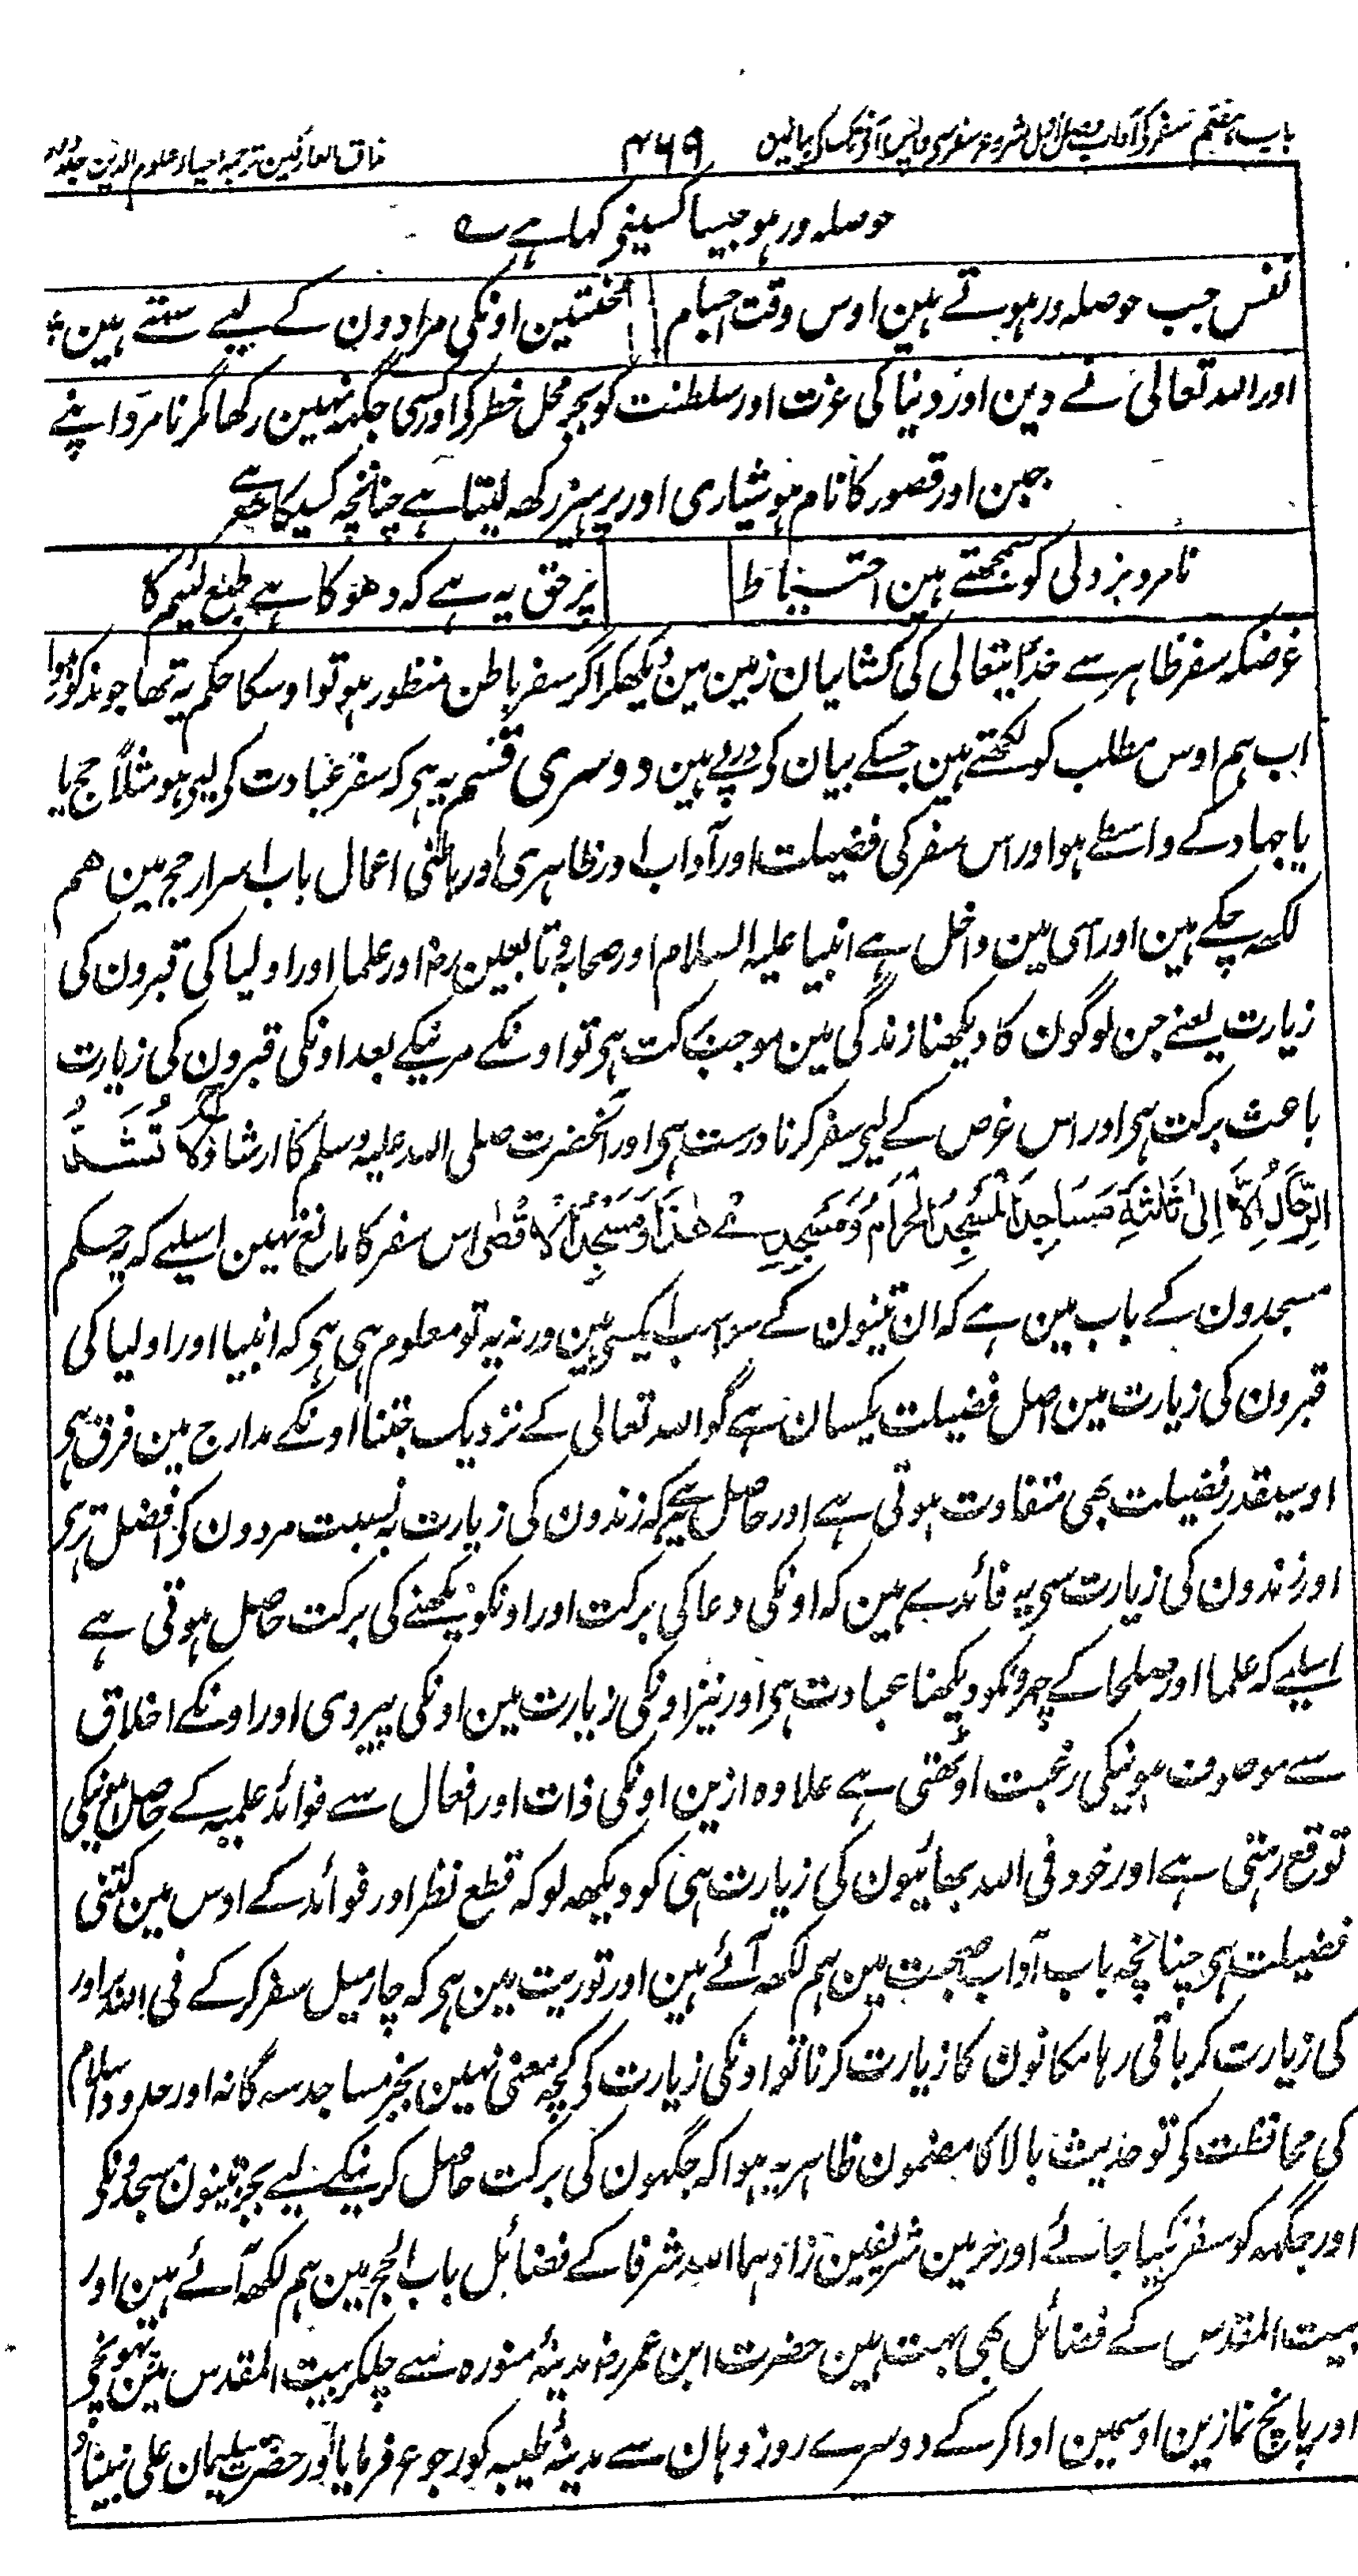 باب ہفتم سفر کے آداب فصل اول شروع سفر سے واپس آنے تک کے بیان میں
۳۶۹
مذاق العارفین ترجمہ احیاء علوم الدین جلد دوم
حوصلہ ور ہو جیسا کسینے کہا ہے ؎
نفس جب حوصلہ ور ہوتے ہین اوس وقت اجسام
محنتین اونکی مرادون کے لیے ستتے ہین ؛
اور اللہ تعالیٰ نے دین اور دنیا کی عزت اور سلطنت کو بجز محل خطر کے اور کسی جگہہ نہین رکھا مگر نامرد اپنے
جبن اور قصور کا نام ہوشیاری اور پرہیز رکھہ لیتا ہے چنانچہ کسیکا شعر ہے
نامرد بزدلی کو سمجھتے ہین احتیاط
پر حق یہ ہے کہ دھوکا ہے طبع لئیم کا
غرضکہ سفر ظاہر سے خدایتعالی کی نشانیان زمین مین دیکھکر اگر سفر باطن منظور ہو تو اوسکا حکم یہ تھا جو مذکور ہوا
اب ہم اوس مطلب کو لکھتے ہین جسکے بیان کے درپے ہین دوسری قسم یہ ہی کہ سفر عبادت کی لیے ہو مثلاً حج یا
یا جہاد کے واسطے ہو اور اس سفر کی فضیلت اور آداب اور ظاہری اور باطنی اعمال باب اسرار حج مین ہم
لکھہ چکے ہین اور اسی مین داخل ہے انبیا علیہ السلام اور صحابہ و تابعین رض اور علما اور اولیا کی قبرون کی
زیارت یعنے جن لوگون کا دیکھنا زندگی مین موجب برکت ہی تو اونکے مرنیکے بعد اونکی قبرون کی زیارت
باعث برکت ہی اور اس غرض کے لیے سفر کرنا درست ہی اور آنحضرت صلی اللہ علیہ وسلم کا ارشاد کہ لَا تُشَدُّ
الرِّحَالُ اِلَّا اِلیٰ ثَلٰثَۃِ مَسَاجِدَ الْمَسْجِدُ الْحَرَامُ وَمَسْجِدِیْ ھٰذَا وَمَسْجِدُ الْاَقْصٰی اس سفر کا مانع نہین اسلیے کہ یہ حکم
مسجدون کے باب مین ہے کہ ان تینون کے سوا سب ایکسی ہین ورنہ یہ تو معلوم ہی ہی کہ انبیا اور اولیا کی
قبرون کی زیارت مین اصل فضیلت یکسان ہے گو اللہ تعالی کے نزدیک جتنا اونکے مدارج مین فرق ہی
اوسیقدر فضیلت بھی متفاوت ہوتی ہے اور حاصل یہ ہے کہ زندون کی زیارت بہ نسبت مردون کے افضل تر ہی
اور زندون کی زیارت سے یہ فائدے ہین کہ اونکی دعا کی برکت اور اونکو دیکھنے کی برکت حاصل ہوتی ہے
اسلیے کہ علما اور صلحا کے چہرونکو دیکھنا عبادت ہی اور نیز اونکی زیارت مین اونکی پیروی اور اونکے اخلاق
سے موصوف ہونیکی رغبت اوٹھتی ہے علاوہ ازین اونکی ذات اور افعال سے فوائد علمیہ کے حاصل ہونیکی
توقع رہتی ہے اور خود فی اللہ بھائیون کی زیارت ہی کو دیکھہ لو کہ قطع نظر اور فوائد کے اوس مین کتنی
فضیلت ہی چنانچہ باب آداب صحبت مین ہم لکھہ آئے ہین اور توریت مین ہی کہ چار میل سفر کر کے فی اللہ برادر
کی زیارت کر باقی رہا مکانون کا زیارت کرنا تو اونکی زیارت کے کچھہ معنی نہین بجز مساجد سہ گانہ اور حدود اسلام
کی محافظت کے تو حدیث بالا کا مضمون ظاہر یہ ہوا کہ جگہون کی برکت حاصل کرنیکے لیے بجز تینون مسجدونکے
اور جگہہ کو سفر نکیا جائے اور حرمین شریفین زادہما اللہ شرفا کے فضائل باب الحج مین ہم لکھہ آئے ہین اور
بیت المقدس کے فضائل بھی بہت ہین حضرت ابن عمر رض مدینۂ منورہ سے چلکر بیت المقدس مین پہونچے
اور پانچ نمازین اوسمین ادا کر کے دوسرے روز وہان سے مدینۂ طیبہ کو رجوع فرمایا اور حضرت سلیمان علی نبینا و